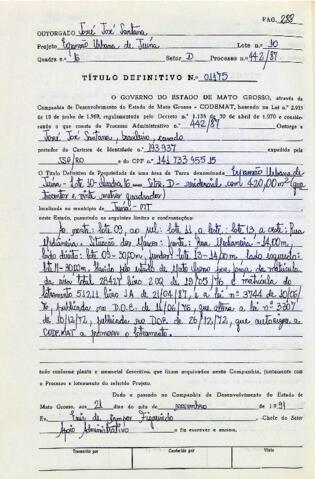 PAG. 288
OUTORGADO José José Santana
Projeto Expansão Urbana de Juína Lote n.º 10
Quadra n.º 16 Setor D Processo n.º 442/87
TÍTULO DEFINITIVO N.º 01175
O GOVERNO DO ESTADO DE MATO GROSSO, através da
Companhia de Desenvolvimento do Estado de Mato Grosso - CODEMAT, baseado na Lei n.º 2.925
de 10 de junho de 1.969, regulamentada pelo Decreto n.º 1.138 de 30 de abril de 1.970 e conside-
rando o que consta do Processo Administrativo n.º 442/87 Outorga a
José José Santana, brasileiro casado
portador da Carteira de Identidade n.º 193937 expedida pela
SSP/RO e do CPF n.º 141 733 955 15
O Título Definitivo de Propriedade de uma área de Terra denominada Expansão Urbana de
Juína - lote 10 - Quadra 16 - Setor D - residencial com 420,00 m² (qua
trocentos e vinte metros quadrados)
localizada no município de Juína - MT
neste Estado, passando os seguintes limites e confrontações:
Ao norte: lote 09, ao sul: lote 11, a leste: lote 13, a oeste: Rua
frente: Rua 14,00m,
lado direito: lote 09 - 30,00m, fundos: lote 13 - 14,00m lado esquerdo:
lote 11 - 30,00m. Havido pelo estado de Mato Grosso por força da matrícula
da área total 28417 livro 2 e matrícula do
loteamento 51211 livro de 21/04/87, e a lei nº 3744 de 10/06/
76, publicada no D.O.E. de 14/06/76, que altera a lei nº 3307
de 18/12/72, publicada no D.O.E. de 26/12/72, que autoriza a
CODEMAT a promover o loteamento.
tudo conforme planta e memorial descritivo, que ficam arquivados nesta Companhia, juntamente com
o Processo e loteamento do referido Projeto.
Dado e passado na Companhia de Desenvolvimento do Estado de
Mato Grosso, aos 21 dias do mês de novembro de 1.991
Eu, de Campos Figueiredo Chefe do Setor
Apoio Administrativo a fiz escrever e assino.
Transcrito por
Conferido por
Visto